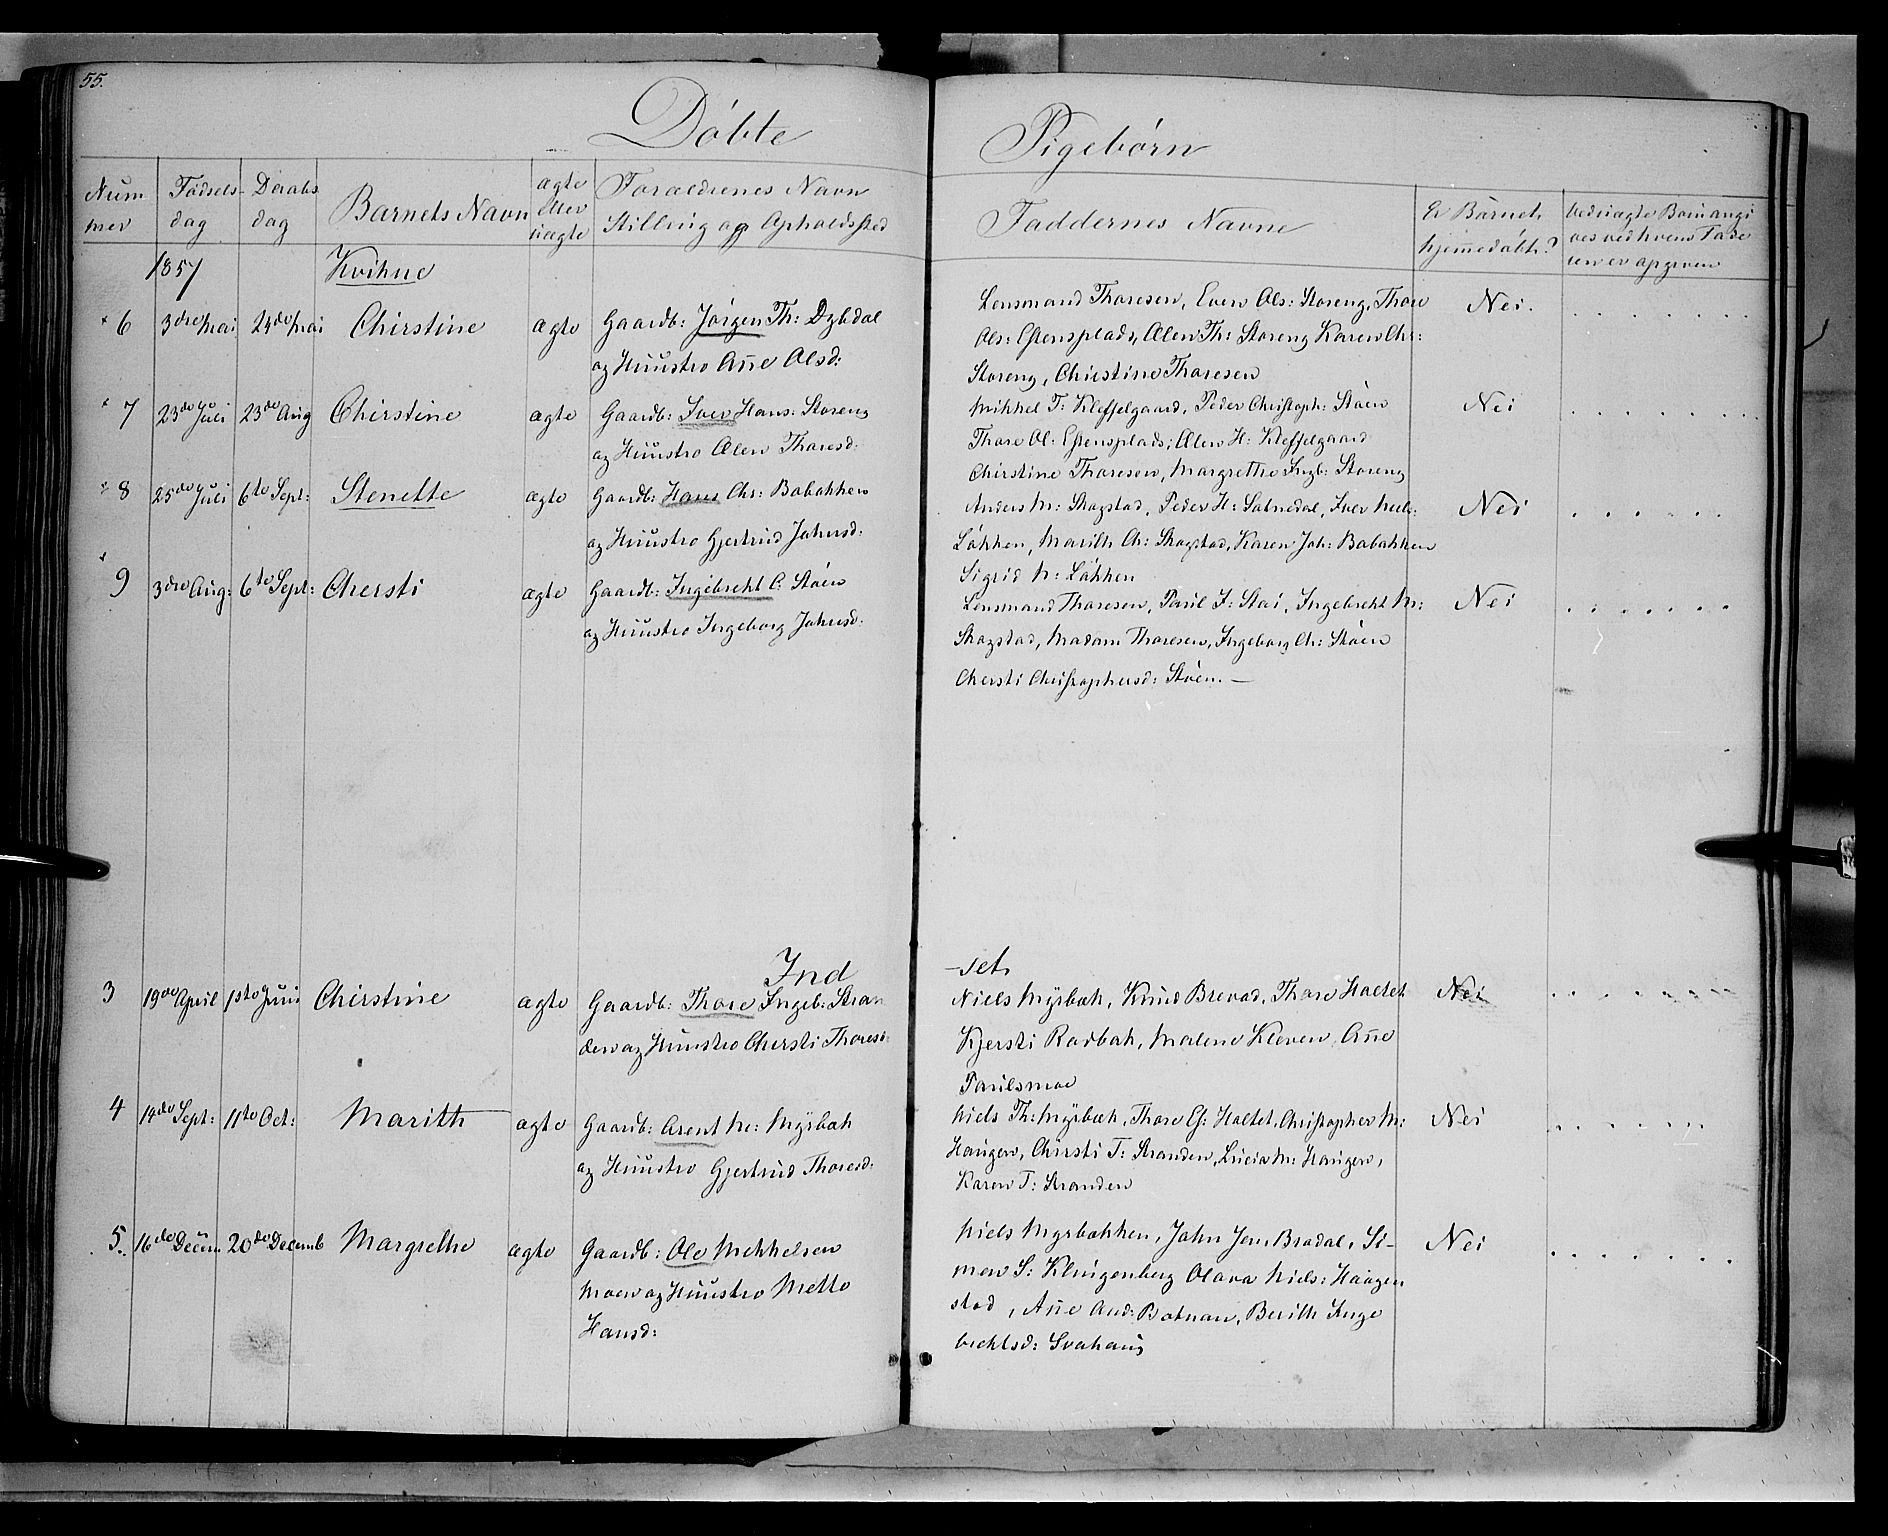 55.
Döbte Pigebörn
Num
mer
Födsels-
dag
Daabs
dag
Barnets Navn
ægte
eller
uægte
Forældrenes Navn
Stilling og Opholdssted
Faddernes Navne
Er Barnet
hjemmedöbt?
Ved uægte Börn angi
ves ved hvem Fade
ren er opgiven
1857 Kvikne
6 3die Mai 24de Mai Chirstine ægte Gaardb: Jörgen Th: Dybdal
og Huustro Añe Olsd:
Lensmand Thoresen, Even Ols: Storeng, Thore
Ols: Estensplads, Ælen Th: Storeng Karen Chr:
Storeng, Christine Thoresen
Nei.
7 23de Juli 23de Aug Chirstine ægte Gaardb: Iver Hans: Storeng
og Huustro Ælen Thoresd:
Mikkel T: Kleffelgaard, Peder Christoph: Stöen
Thore Ol: Estensplads, Ælen H: Kleffelgaard
Chirstine Thoresen, Margrethe Ingb: Storeng
Nei
8 25de Juli 6te Sept: Stenette ægte Gaardb: Hans Chr: Bobakken
og Huustro Gjertrud Johnsd:
Anders M: Skogstad, Peder H: Sætnedal, Iver
Lökken, Marith Ch: Skogstad, Karen Joh: Bobakken
Sigrid N: Lökken
Nei
9 3die Aug: 6te Sept: Chersti ægte Gaardb: Ingebreht C: Stöen
og Huustro Ingeborg Johnsd:
Lensmand Thoresen, Paul I: Stai, Ingebreht M:
Skogstad, Madam Thoresen, Ingeborg Ch: Stöen
Chersti Christophersd: Stöen. —
Nei
Ind -set
3 19de April 1ste Juni Chirstine ægte Gaardb: Thore Ingeb: Stran
den og Huustro Chersti Thoresd:
Niels Myrbæk, Knud Brevad, Thore Haltet
Kjersti Rødbæk, Malene Kleven, Añe
Paulsmoe
Nei
4 14de Sept: 11te Oct: Marith ægte Gaardb: Arent N: Myrbæk
og Huustro Gjertrud Thoresd:
Niels Th: Myrbæk, Thore Es: Haltet, Christopher M:
Haugen, Chirsti T: Stranden, Lucia M: Haugen,
Karen T: Stranden
Nei
5. 16de Decem. 20de Decemb Margrethe ægte Gaardb: Ole Mekkelsen
Moen og Huustro Mette
Hansd:
Niels Myrbækken, John Jen: Bradal, Si-
men S: Klingenberg Olava Niels: Haagen
stad, Añe And: Botnan, Berith Inge
brehtsd: Svahaug
Nei